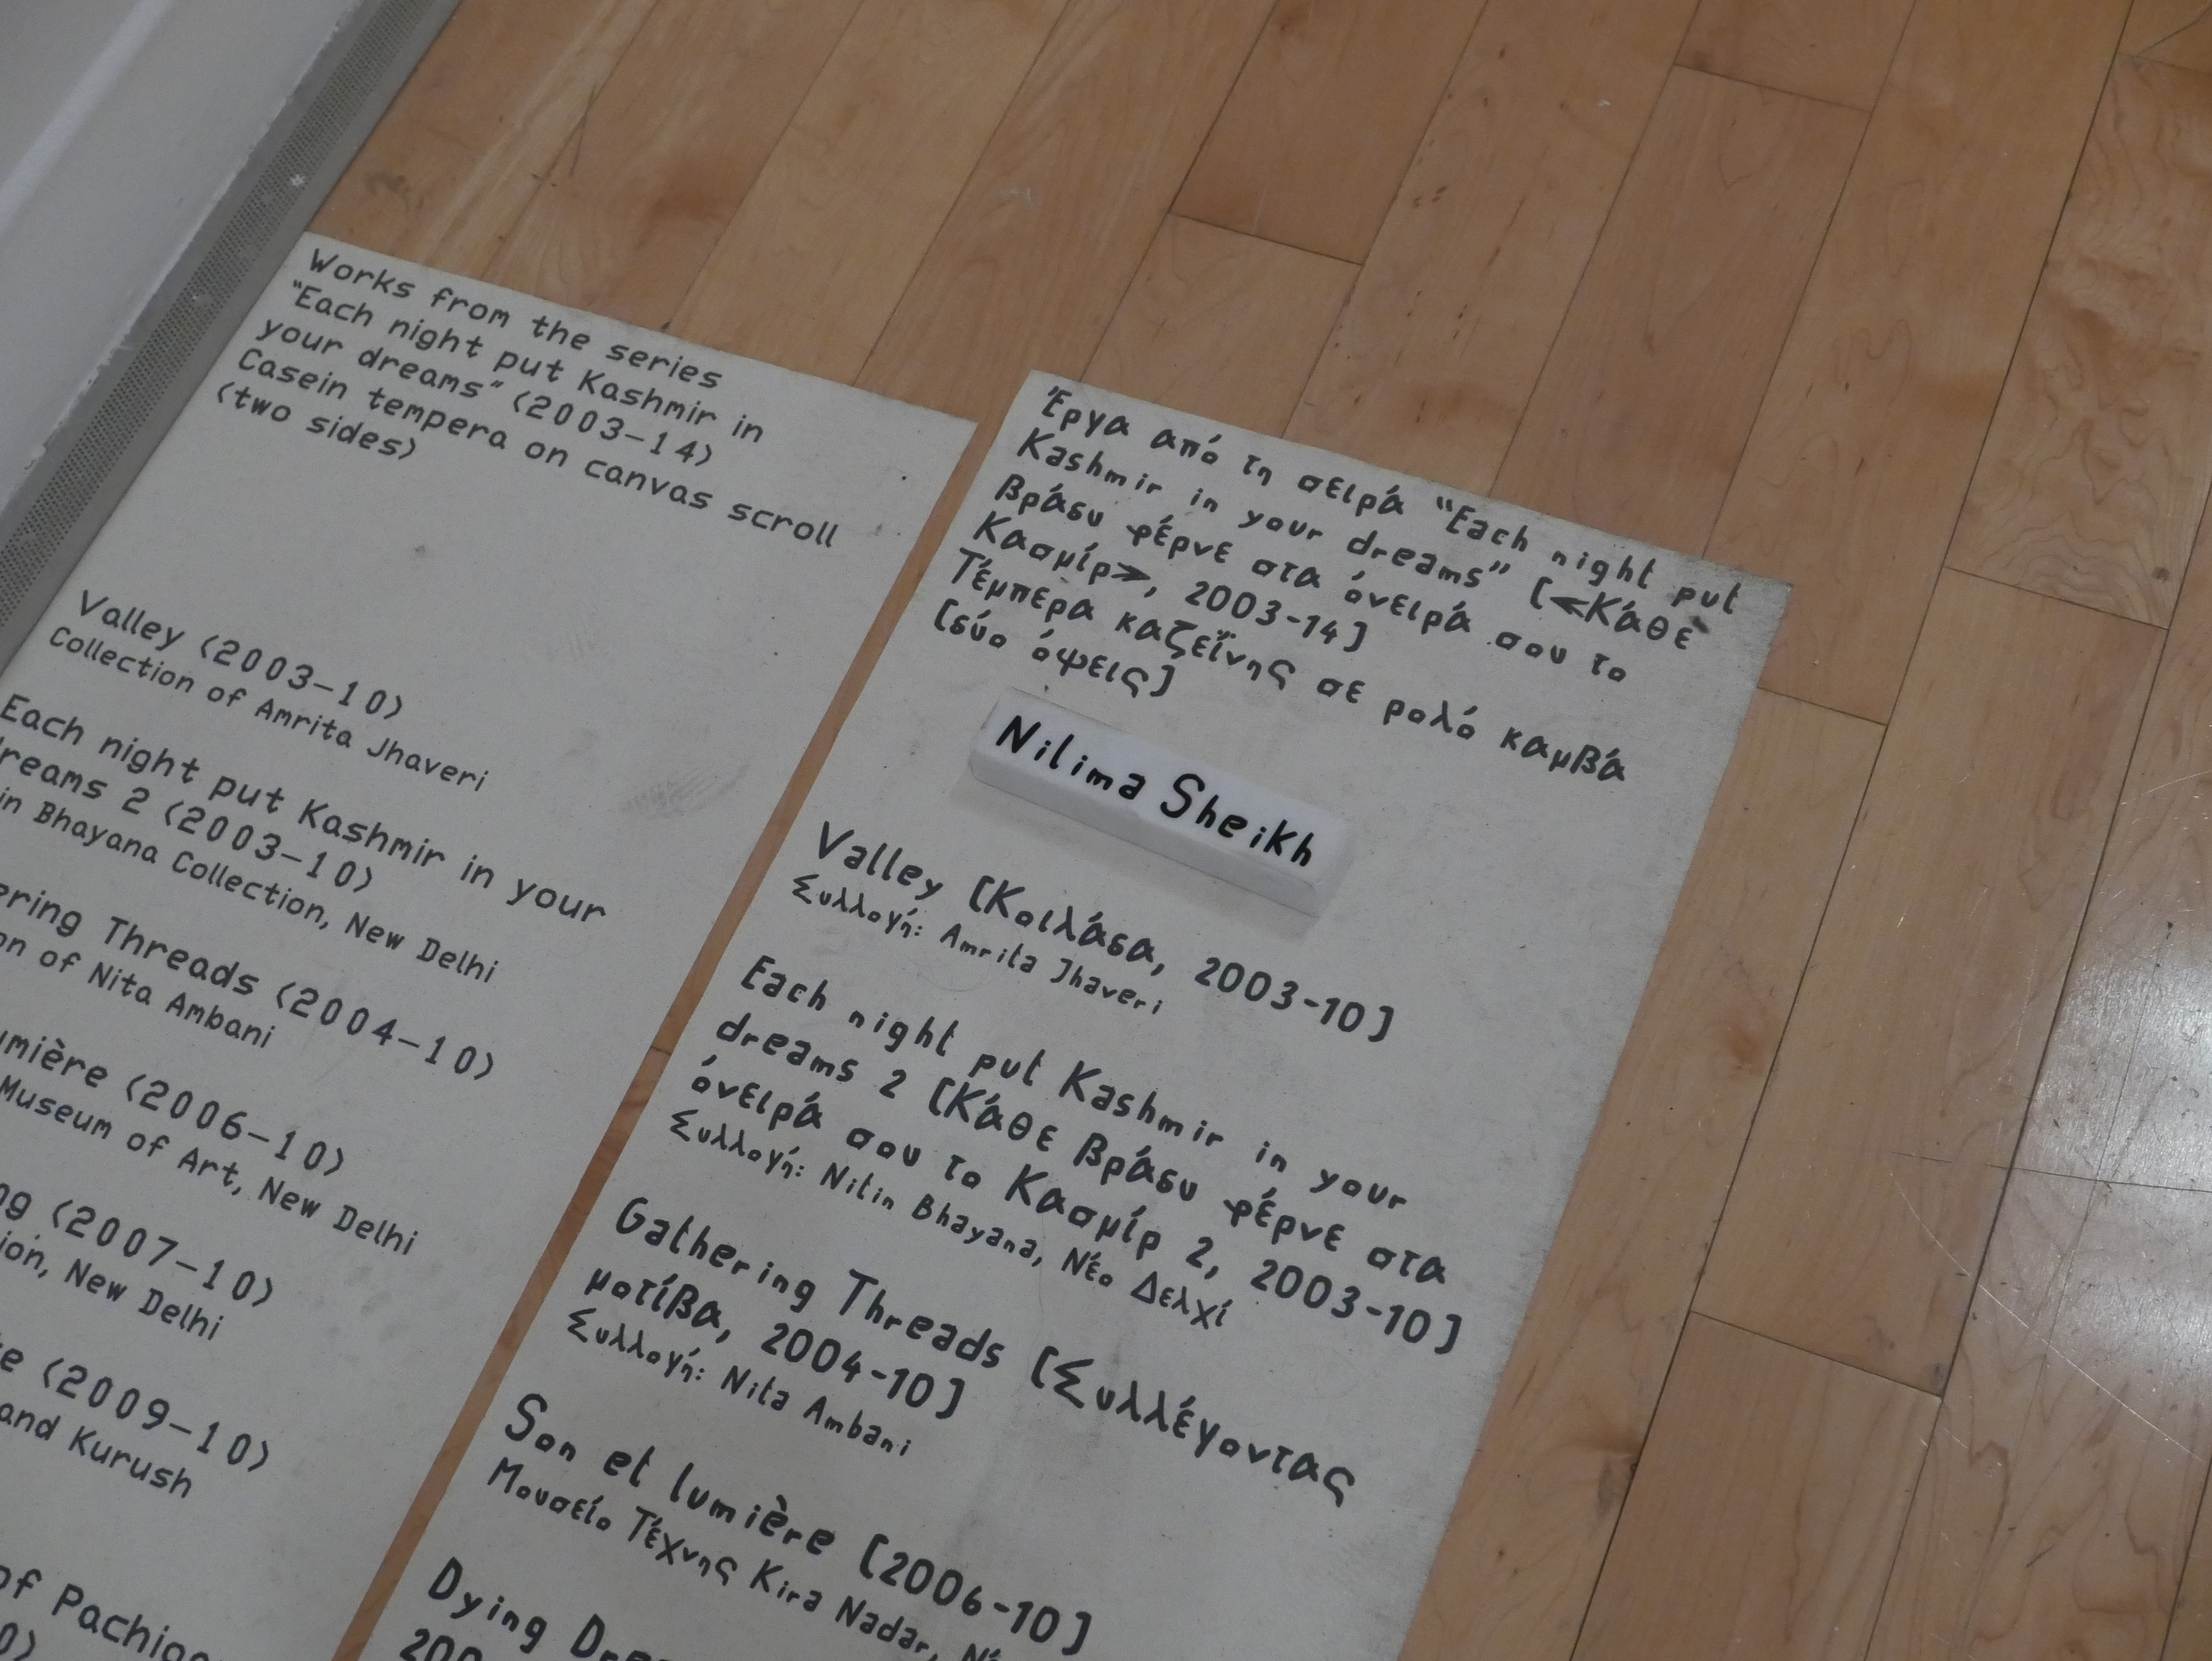 Works from the series
“Each night put Kashmir in
your dreams” (2003–14)
Casein tempera on canvas scroll
(two sides)
Valley (2003–10)
Collection of Amrita Jhaveri
Each night put Kashmir in your
dreams 2 (2003–10)
in Bhayana Collection, New Delhi
ering Threads (2004–10)
on of Nita Ambani
umière (2006–10)
Museum of Art, New Delhi
ng (2007–10)
ion, New Delhi
(2009–10)
and Kurush
of Pachigam
Έργα από τη σειρά “Each night put
Kashmir in your dreams” [≪Κάθε
βράδυ φέρνε στα όνειρά σου το
Κασμίρ≫, 2003-14]
Τέμπερα καζεΐνης σε ρολό καμβά
[δύο όψεις]
Nilima Sheikh
Valley [Κοιλάδα, 2003-10]
Συλλογή: Amrita Jhaveri
Each night put Kashmir in your
dreams 2 [Κάθε βράδυ φέρνε στα
όνειρά σου το Κασμίρ 2, 2003-10]
Συλλογή: Nitin Bhayana, Νέο Δελχί
Gathering Threads [Συλλέγοντας
μοτίβα, 2004-10]
Συλλογή: Nita Ambani
Son et lumière [2006-10]
Μουσείο Τέχνης Kira Nadar,
Dying